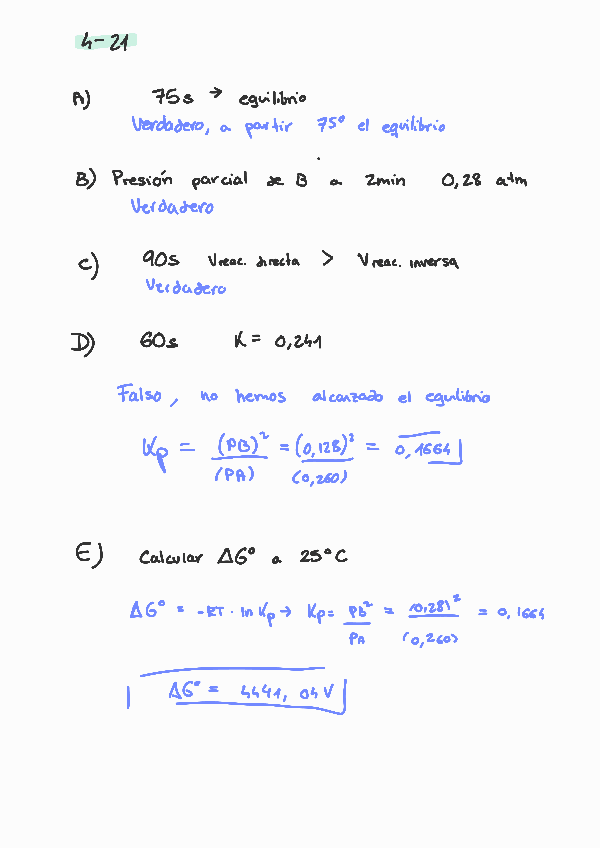 4-21
A) 75s → equilibrio
Verdadero, a partir 75º el equilibrio
B) Presión parcial de B a 2min 0,28 atm
Verdadero
C) 90s Vreac. directa > Vreac. inversa
Verdadero
D) 60s K = 0,241
Falso, no hemos alcanzado el equilibrio
Kp = (PB)² / (PA) = (0,128)² / (0,260) = 0,1664
E) Calcular ΔGº a 25ºC
ΔGº = -RT · ln Kp → Kp = Pb² / PA = (0,28)² / (0,260) = 0,1664
ΔGº = 4441, 04 V